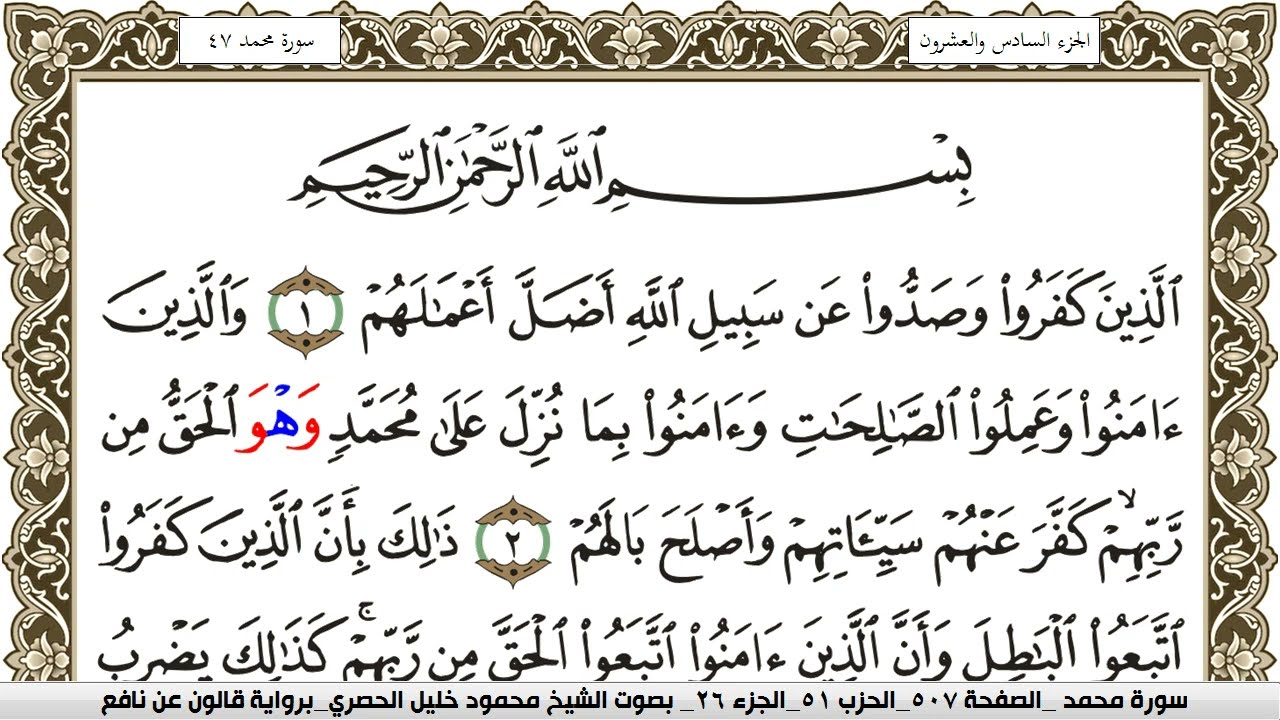 الجزء السادس والعشرون
سورة محمد ٤٧
بِسْمِ ٱللَّهِ ٱلرَّحْمَٰنِ ٱلرَّحِيمِ
ٱلَّذِينَ كَفَرُواْ وَصَدُّواْ عَن سَبِيلِ ٱللَّهِ أَضَلَّ أَعْمَٰلَهُمْ ١ وَٱلَّذِينَ
ءَامَنُواْ وَعَمِلُواْ ٱلصَّٰلِحَٰتِ وَءَامَنُواْ بِمَا نُزِّلَ عَلَىٰ مُحَمَّدٍ وَهْوَ ٱلْحَقُّ مِن
رَّبِّهِمْ ۙ كَفَّرَ عَنْهُمْ سَيِّـَٔاتِهِمْ وَأَصْلَحَ بَالَهُمْ ٢ ذَٰلِكَ بِأَنَّ ٱلَّذِينَ كَفَرُواْ
ٱتَّبَعُواْ ٱلْبَٰطِلَ وَأَنَّ ٱلَّذِينَ ءَامَنُواْ ٱتَّبَعُواْ ٱلْحَقَّ مِن رَّبِّهِمْ ۚ كَذَٰلِكَ يَضْرِبُ
سورة محمد _الصفحة ٥٠٧_الحزب ٥١_الجزء ٢٦_ بصوت الشيخ محمود خليل الحصري_برواية قالون عن نافع